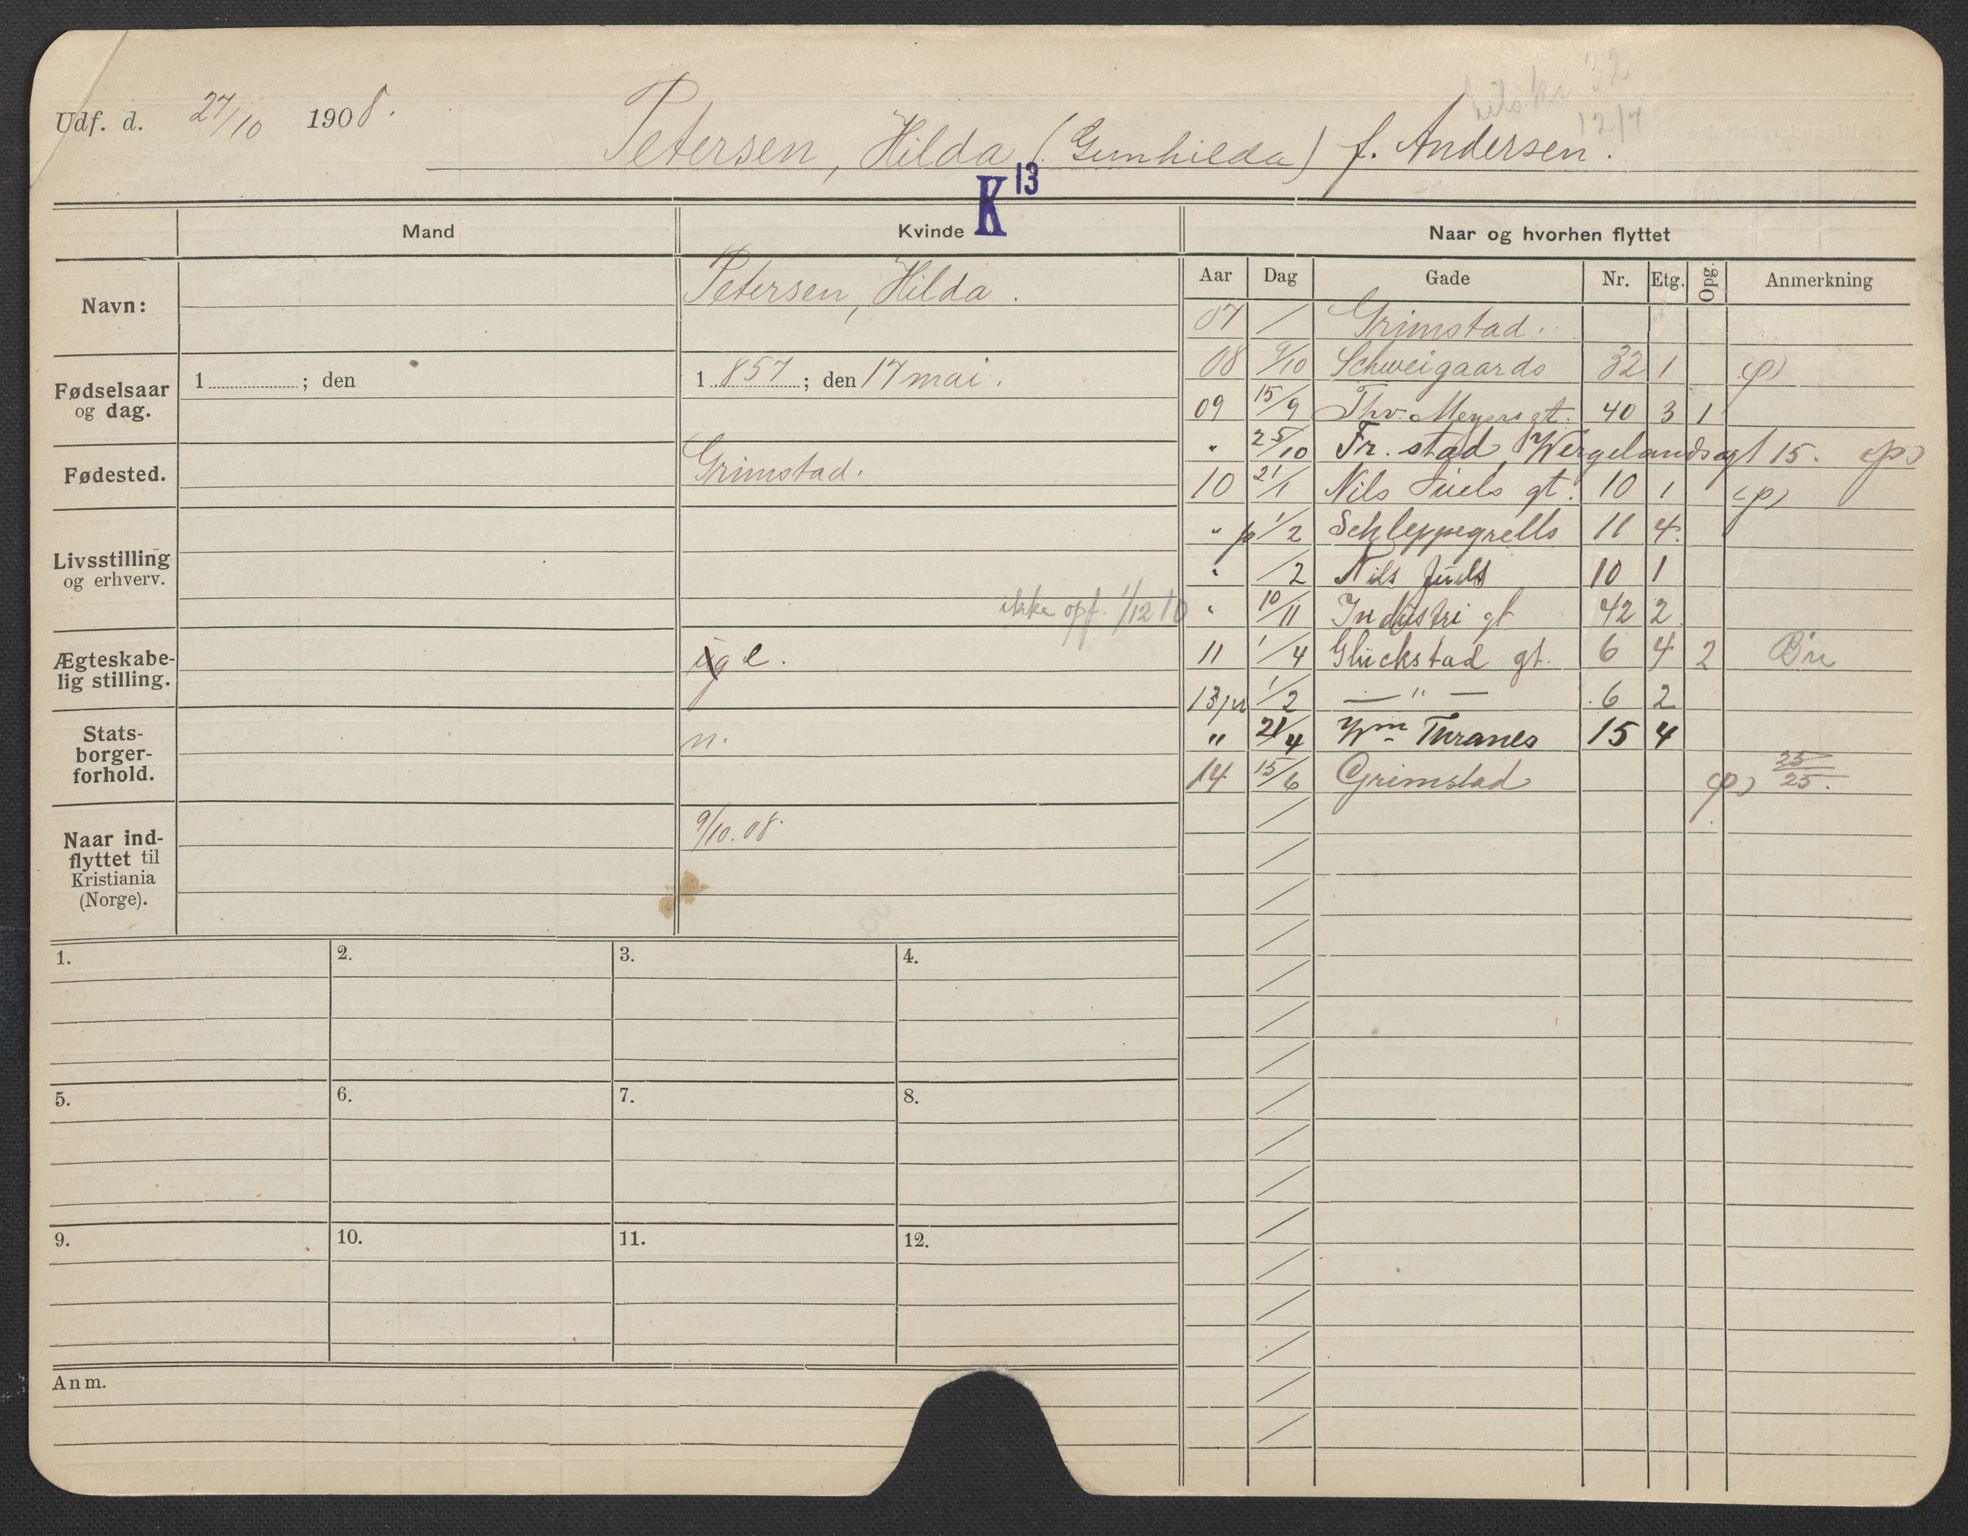 Udf. d. 27/10 1908.
Petersen, Hilda (Gunhilda) f. Andersen.
32
12/7
K 13
Mand
Kvinde
Naar og hvorhen flyttet
Aar Dag Gade Nr. Etg. Opg. Anmerkning
Navn:
Petersen, Hilda.
Fødselsaar og dag.
1 ; den
1 857 ; den 17 mai.
Fødested.
Grimstad.
Livsstilling og erhverv.
ikke opf. 1/12 10
Ægteskabelig stilling.
ig e.
Statsborgerforhold.
n.
Naar indflyttet til Kristiania (Norge).
9/10.08.
07 / Grimstad.
08 9/10 Schweigaards 32 1 (p)
09 15/9 Thv. Meyers gt. 40 3 1
" 25/10 Fr. stad, Wergelandsgt 15. (p)
10 21/1 Nils Juels gt. 10 1 (p)
" p 1/2 Schleppegrells 11 4.
" /2 Nils Juels 10 1
" 10/11 Industri gt 42 2
11 1/4 Glückstad gt. 6 4 2
13 pr 1/2 — " — 6 2
" 21/4 Wm Thranes 15 4
14 15/6 Grimstad (p) 25/25.
1. 2. 3. 4.
5. 6. 7. 8.
9. 10. 11. 12.
Anm.